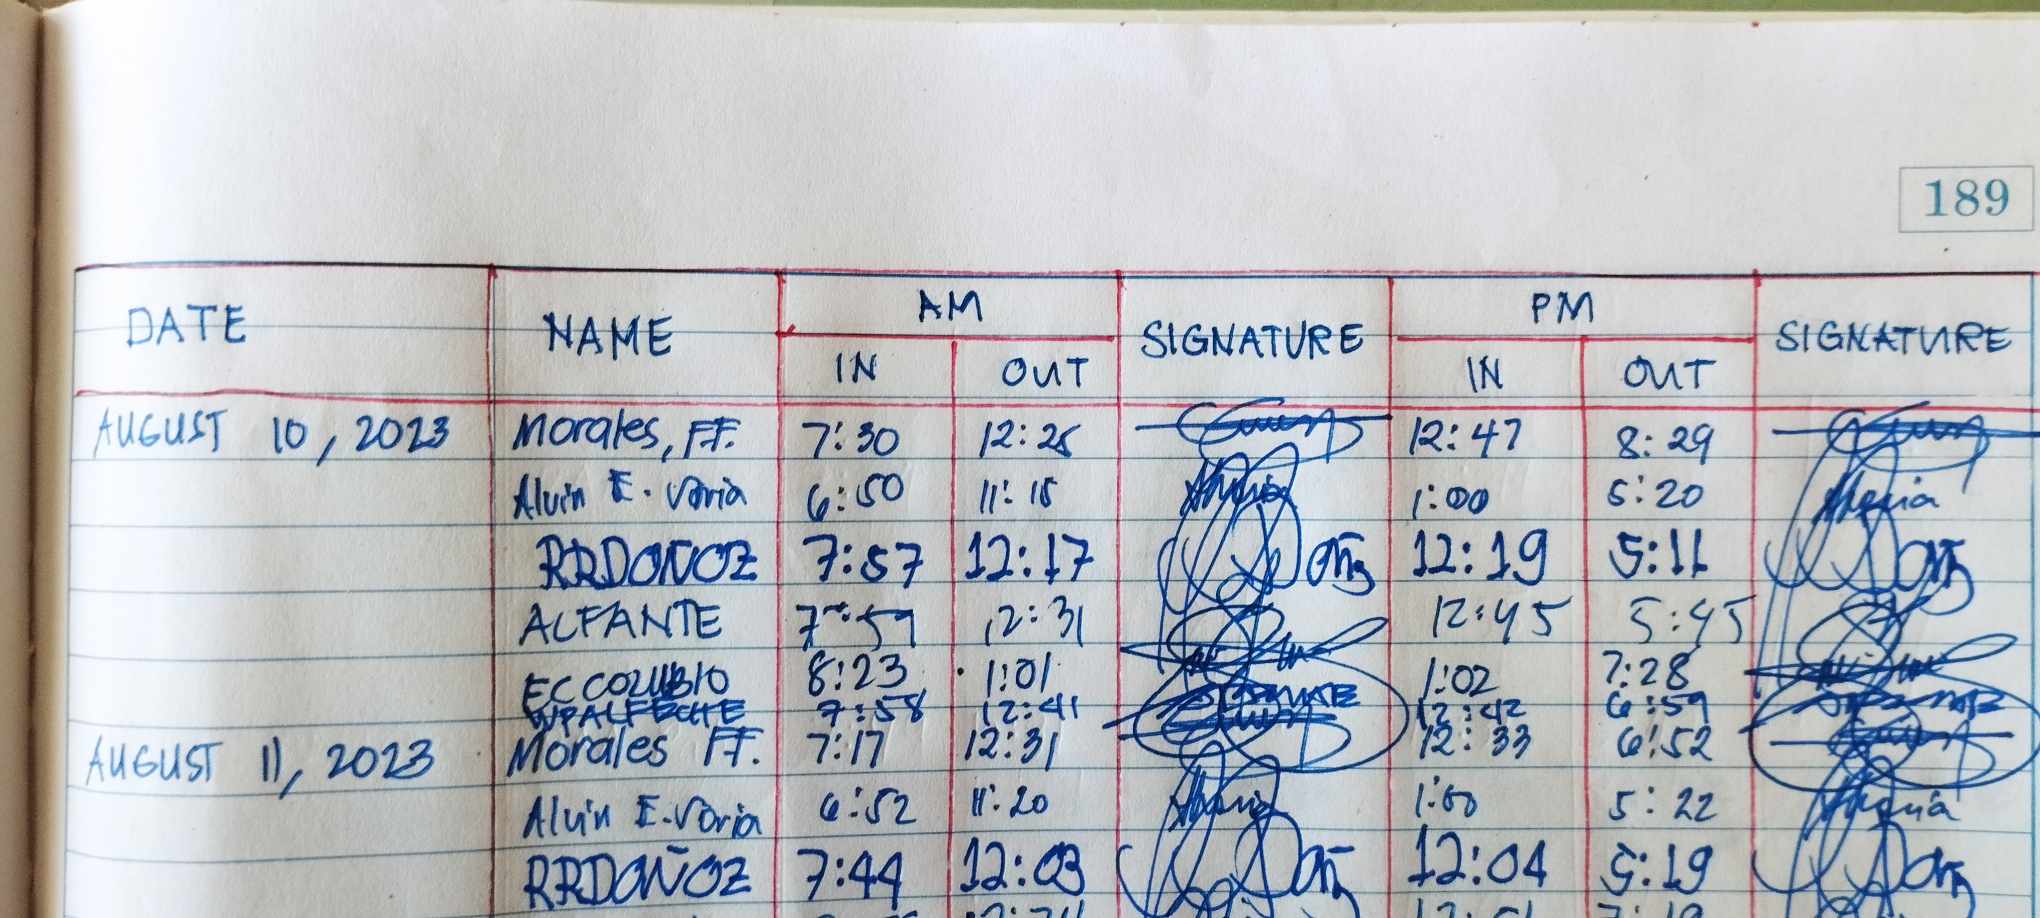 189
DATE NAME AM SIGNATURE PM SIGNATURE
IN OUT IN OUT
AUGUST 10, 2023 Morales, FF. 7:30 12:25 12:47 8:29
Alvin E. Varia 6:50 11:15 1:00 5:20
RRDOÑOZ 7:57 12:17 12:19 5:11
ALFANTE 7:59 12:31 12:45 5:45
EC COLUBIO 8:23 1:01 1:02 7:28
WPALFECHE 7:58 12:41 12:42 6:59
AUGUST 11, 2023 Morales FF. 7:17 12:31 12:33 6:52
Alvin E. Varia 6:52 11:20 1:00 5:22
RRDOÑOZ 7:44 12:03 12:04 5:19